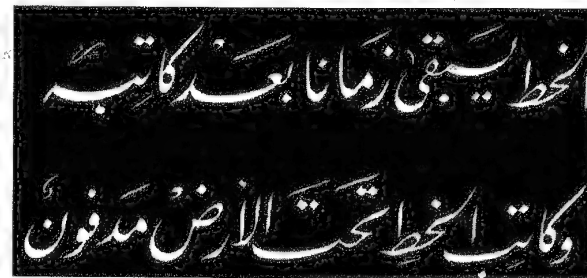 الخط يبقى زمانا بعد كاتبه
وكاتب الخط تحت الأرض مدفون